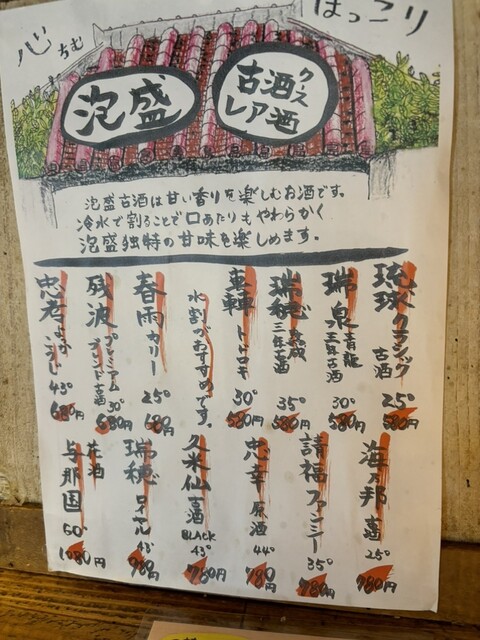 心
ちむ
ほっこり
泡盛
古酒
クース
レア酒
泡盛古酒は甘い香りを楽しむお酒です。
冷水で割ることで口あたりもやわらかく
泡盛独特の甘味を楽しめます。
琉球クラシック 古酒 25° 580円
瑞泉 青龍 三年古酒 30° 580円
瑞穂 熟成 三年古酒 35° 580円
轟 トドロキ 30° 580円
水割がおすすめです。
春雨カリー 25° 680円
残波 プレミアム ブレンド古酒 30° 680円
忠孝 よっかこうじ 43° 680円
海乃邦 25° 780円
請福ファンシー 35° 780円
忠孝 原酒 44° 780円
久米仙 古酒 BLACK 43° 780円
瑞穂 ロイヤル 43° 980円
与那国 花酒 60° 1080円